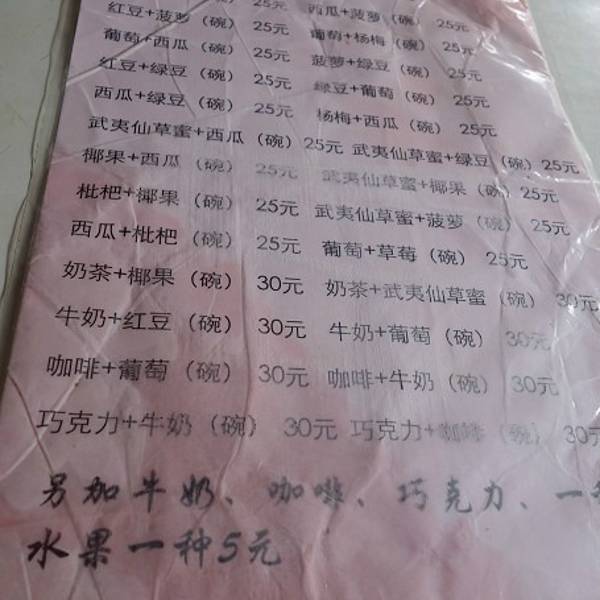 25元
红豆+菠萝（碗） 25元 西瓜+菠萝（碗） 25元
葡萄+西瓜（碗） 25元 葡萄+杨梅（碗） 25元
红豆+绿豆（碗） 25元 菠萝+绿豆（碗） 25元
西瓜+绿豆（碗） 25元 绿豆+葡萄（碗） 25元
武夷仙草蜜+西瓜（碗）25元 杨梅+西瓜（碗） 25元
椰果+西瓜（碗） 25元 武夷仙草蜜+绿豆（碗）25元
枇杷+椰果（碗） 25元 武夷仙草蜜+椰果（碗）25元
西瓜+枇杷（碗） 25元 武夷仙草蜜+菠萝（碗） 25元
奶茶+椰果（碗） 30元 葡萄+草莓（碗） 25元
牛奶+红豆（碗） 30元 奶茶+武夷仙草蜜（碗） 30元
咖啡+葡萄（碗） 30元 牛奶+葡萄（碗） 30元
巧克力+牛奶（碗） 30元 咖啡+牛奶（碗） 30元
巧克力+咖啡（碗） 30元
另加牛奶、咖啡、巧克力、一
水果一种5元